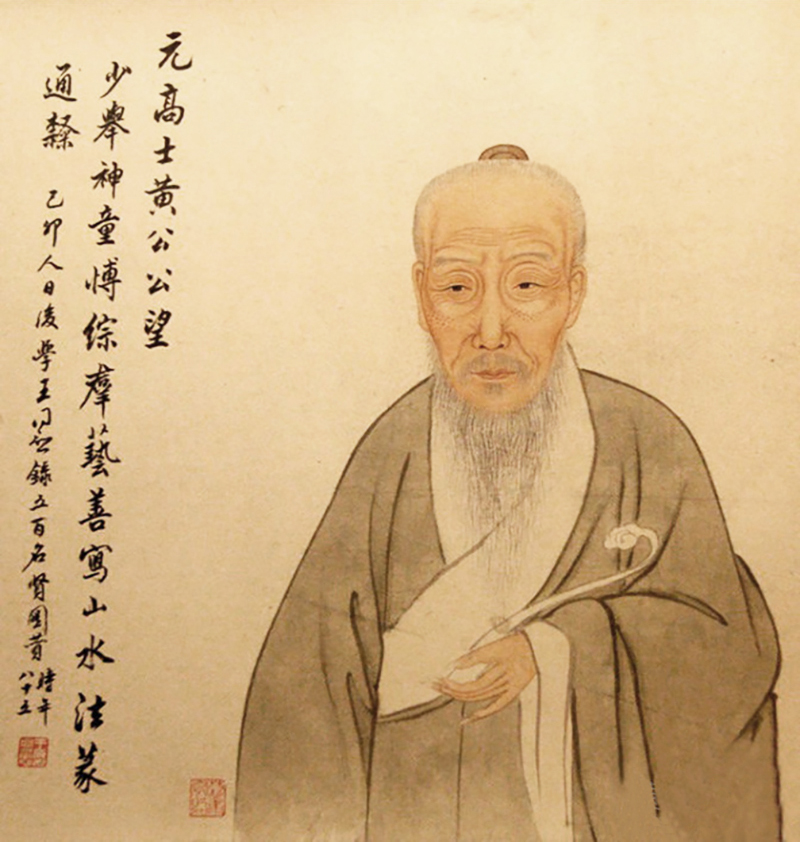 元高士黄公公望
少舉神童愽综羣藝善寫山水法篆
通隸 己卯人日後學王同愈錄五百名賢圖贊
時年
八十五